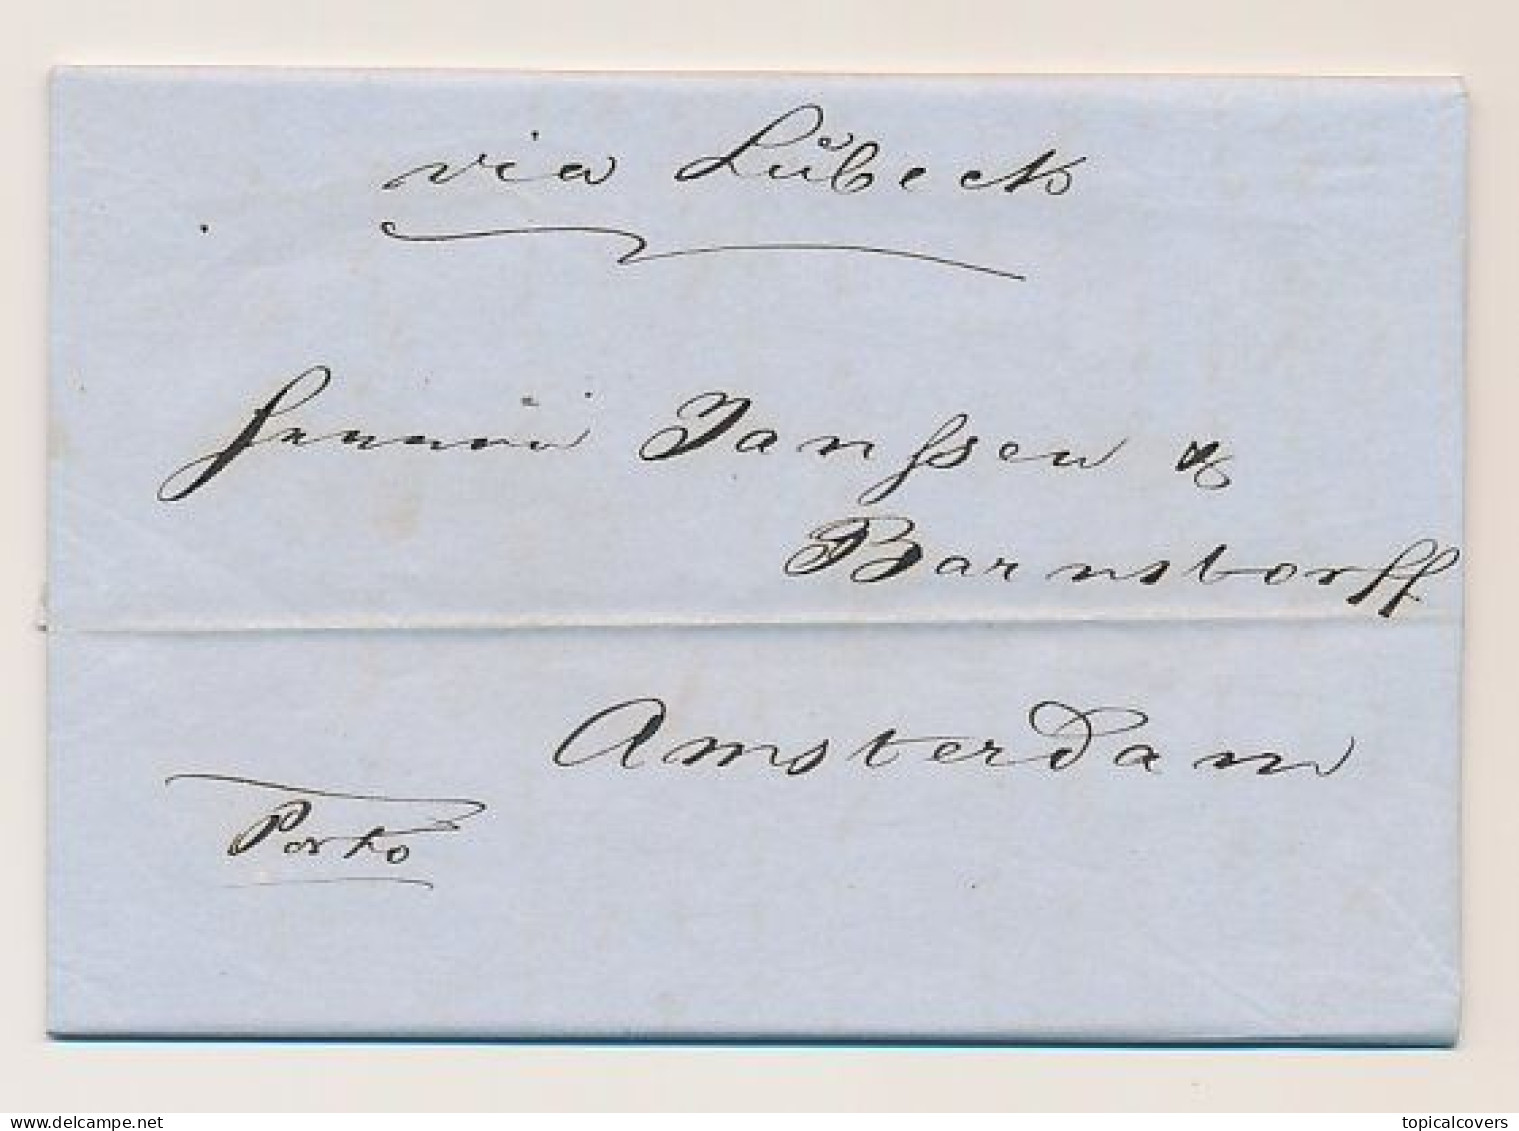 via Lübeck
Herren Janssen &
Barnstorff
Amsterdam
Porto
www.delcampe.net
topicalcovers